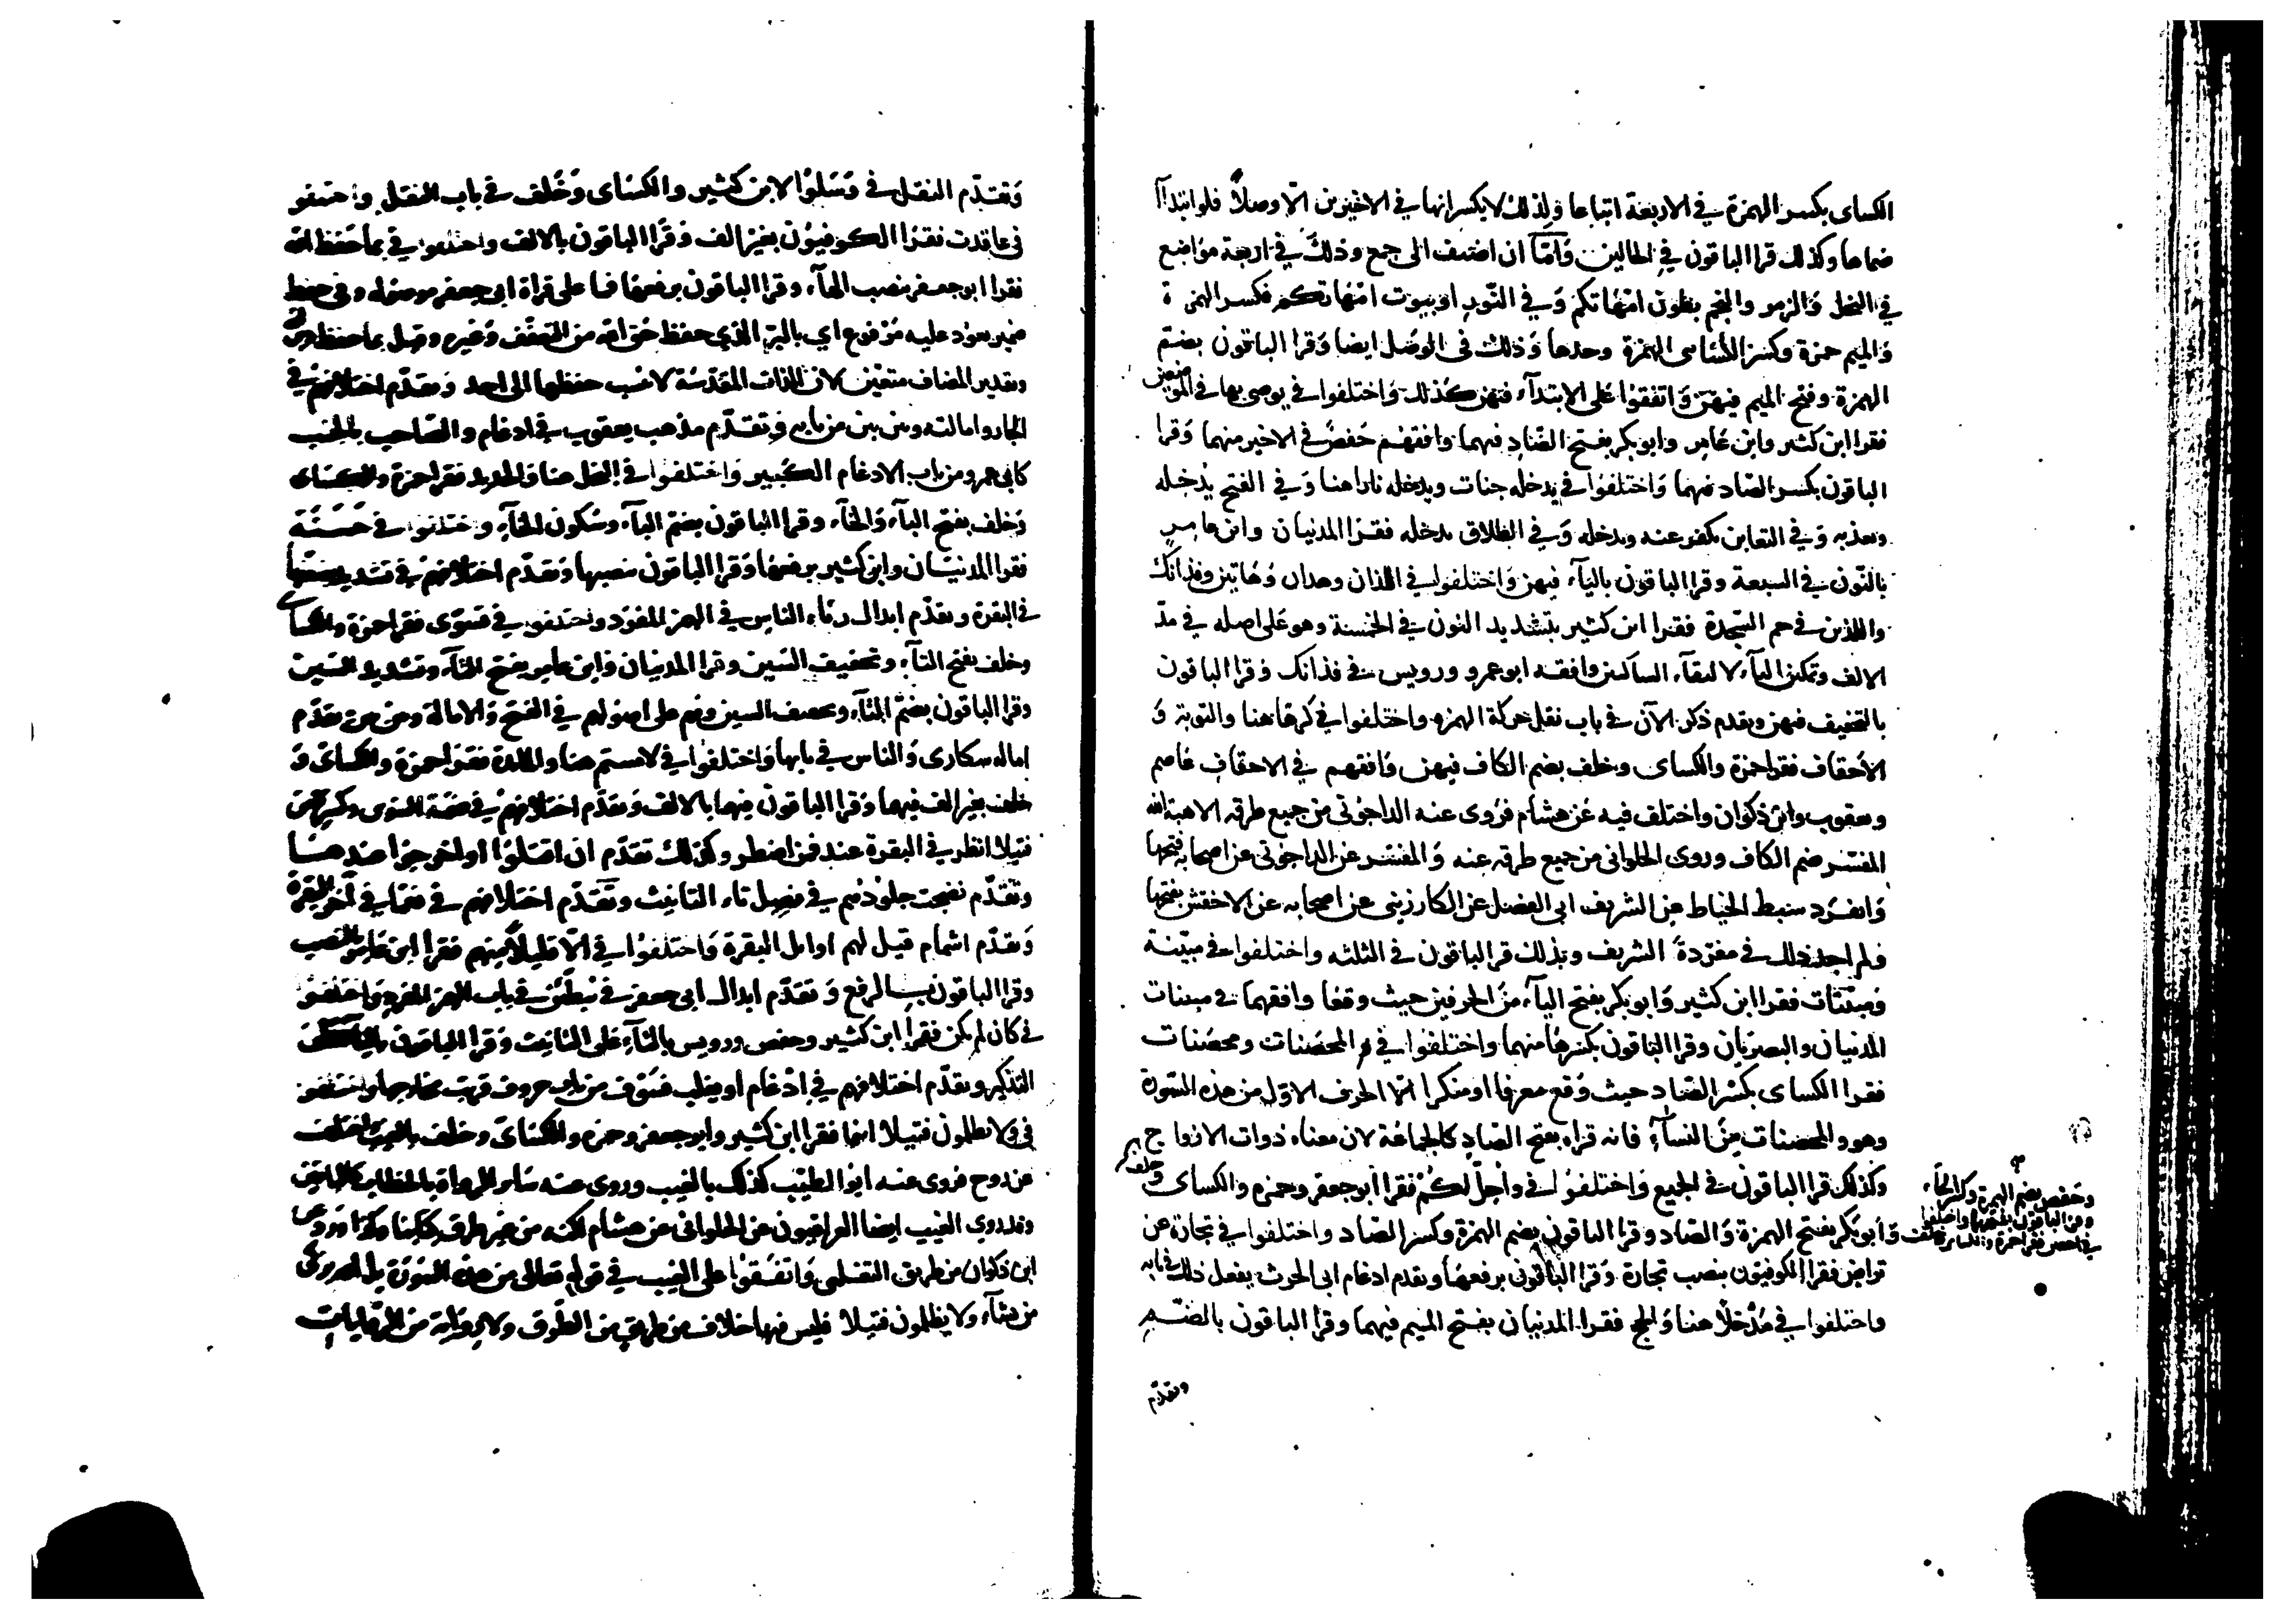 الكساى بكسر الهمزة في الاربعة اتباعا ولذلك لا يكسرانها في الاخيرين الا وصلاً فلو ابتدآ
ضماها وكذلك قرا الباقون في الحالين وامّا ان اضيف الى جمع وذلك في اربعة مواضع
في النحل والزمر والنجم بطون امّهاتكم وفي النّور او بيوت امّهاتكم فكسر الهمزة
والميم حمزة وكسر الكساى الهمزة وحدها وذلك في الوصل ايضا وقرا الباقون بضم
الهمزة وفتح الميم فيهن واتفقوا على الابتدآء فيهن كذلك واختلفوا في يوصى بها في الموضعين
فقرا ابن كثير وابن عامر وابو بكر بفتح الصّاد فيهما وافقهم حفص في الاخير منهما وقرا
الباقون بكسر الصّاد فيهما واختلفوا في يدخله جنات ويدخله نارا هنا وفي الفتح يدخله
ويعذبه وفي التغابن يكفر عنه ويدخله وفي الطلاق يدخله فقرا المدنيان وابن عامر
بالنّون في السبعة وقرا الباقون باليآء فيهن واختلفوا في اللذان وهذان وهاتين وفذانك
واللذين في حم السّجدة فقرا ابن كثير بتشديد النون في الخمسة وهو على اصله في مدّ
الالف وتمكين اليآء لالتقآء الساكنين وافقه ابو عمرو ورويس في فذانك وقرا الباقون
بالتخفيف فيهن وتقدم ذكر الآن في باب نقل حركة الهمزه واختلفوا في كرها هنا والتوبة و
الاحقاف فقرا حمزة والكساى وخلف بضم الكاف فيهن وافقهم في الاحقاف عاصم
ويعقوب وابن ذكوان واختلف فيه عن هشام فروى عنه الداجوني من جميع طرقه الا هبة الله
المفسّر ضم الكاف وروى الحلواني من جميع طرقه عنه والمفسّر عن الداجوني عن اصحابه فتحها
وانفرد سبط الخياط عن الشريف ابي الفضل عن الكارزيني عن اصحابه عن الاخفش بفتحها
ولم اجد ذلك في مفردة الشريف وبذلك قرا الباقون في الثلثه واختلفوا في مبيّنة
ومبيّنات فقرا ابن كثير وابو بكر بفتح اليآء من الحرفين حيث وقعا وافقهما في مبينات
المدنيان والبصريان وقرا الباقون بكسرها منهما واختلفوا في المحصنات ومحصنات
فقرا الكساى بكسر الصّاد حيث وقع معرفا او منكرا الّا الحرف الاوّل من هذه السّورة
وهو والمحصنات من النسآء فانه قراه بفتح الصّاد كالجماعة لان معناه ذوات الازواج
وكذلك قرا الباقون في الجميع واختلفوا في واحلّ لكم فقرا ابو جعفر وحمزه والكساى وخلف
وحفص بضم الهمزة وكسر الحآء
وقرا الباقون بفتحهما واختلفوا
في احصن فقرا حمزة والكساى وخلف
وابو بكر بفتح الهمزة والصّاد وقرا الباقون بضم الهمزة وكسر الصّاد واختلفوا في تجارة عن
تراض فقرا الكوفيون بنصب تجارة وقرا الباقون برفعها وتقدم ادغام ابي الحرث يفعل ذلك في بابه
واختلفوا في مُدْخلًا هنا والحج فقرا المدنيان بفتح الميم فيهما وقرا الباقون بالضّم
وتقدّم
وتقدّم النقل في وسلوا لابن كثير والكساى وخلف في باب النقل واختلفوا
في عاقدت فقرا الكوفيون بغير الف وقرا الباقون بالالف واختلفوا في بما حفظ الله
فقرا ابو جعفر بنصب الهآء وقرا الباقون برفعها فما على قراة ابي جعفر موصوله وفي حفظ
ضمير يعود عليه مرفوع اي بالبرّ الذي حفظ حق الله من التعفّف وغيره وقيل بما حفظ دين الله
وتقدير المضاف متعيّن لان الذات المقدّسة لا ينسب حفظها الى احد وتقدّم اختلافهم في
الجار وامالته وبين بين من بابه وتقدّم مذهب يعقوب في ادغام والصّاحب بالجنب
كابي عمرو من باب الادغام الكبير واختلفوا في البخل هنا والحديد فقرا حمزة والكساى
وخلف بفتح البآء والخآء وقرا الباقون بضم البآء وسكون الخآء واختلفوا في حسنة
فقرا المدنيان وابن كثير برفعها وقرا الباقون بنصبها وتقدّم اختلافهم في تشديد يضعفها
في البقرة وتقدّم ابدال رئآء الناس في الهمز المفرد واختلفوا في تسوّى فقرا حمزة والكساى
وخلف بفتح التآء وتخفيف السّين وقرا المدنيان وابن عامر بفتح التآء وتشديد السّين
وقرا الباقون بضمّ التآء وتخفيف السين وهم على اصولهم في الفتح والامالة وبين بين وتقدّم
اماله سكارى والناس في بابها واختلفوا في لامستم هنا والمائدة فقرا حمزة والكساى و
خلف بغير الف فيهما وقرا الباقون فيهما بالالف وتقدّم اختلافهم في ضمّة التنوين وكسرته من
فتيلا انظر في البقرة عند فمن اضطر وكذلك تقدّم ان اقتلوا او اخرجوا عندها
وتقدّم نضجت جلودهم في فصل تاء التانيث وتقدّم اختلافهم في نعمّا في آخر البقرة
وتقدّم اشمام قيل لهم اوايل البقرة واختلفوا في الّا قليلا منهم فقرا ابن عامر بالنصب
وقرا الباقون بالرفع وتقدّم ابدال ابي جعفر في ليبطّئن في باب الهمز المفرد واختلفوا
في كان لم يكن فقرا ابن كثير وحفص ورويس بالتآء على التانيث وقرا الباقون باليآء على
التذكير وتقدّم اختلافهم في ادغام او يغلب فسوف من باب حروف قربت مخارجها واختلفوا
في ولا يظلمون فتيلا اينما فقرا ابن كثير وابو جعفر وحمزه والكساى وخلف بالغيب واختلف
عن روح فروى عنه ابو الطيّب كذلك بالغيب وروى عنه ساير الرواة بالخطاب كالباقين
وقد روى الغيب ايضا العراقيون عن الحلواني عن هشام لكنه من غير طرق كتابنا وكذا ورد عن
ابن ذكوان من طريق التغلبي واتفقوا على الغيب في قوله تعالى من هذه السّورة بل الله يزكى
من يشآء ولا يظلمون فتيلا فليس فيها خلاف من طريق من الطّرق ولا رواية من الروايات